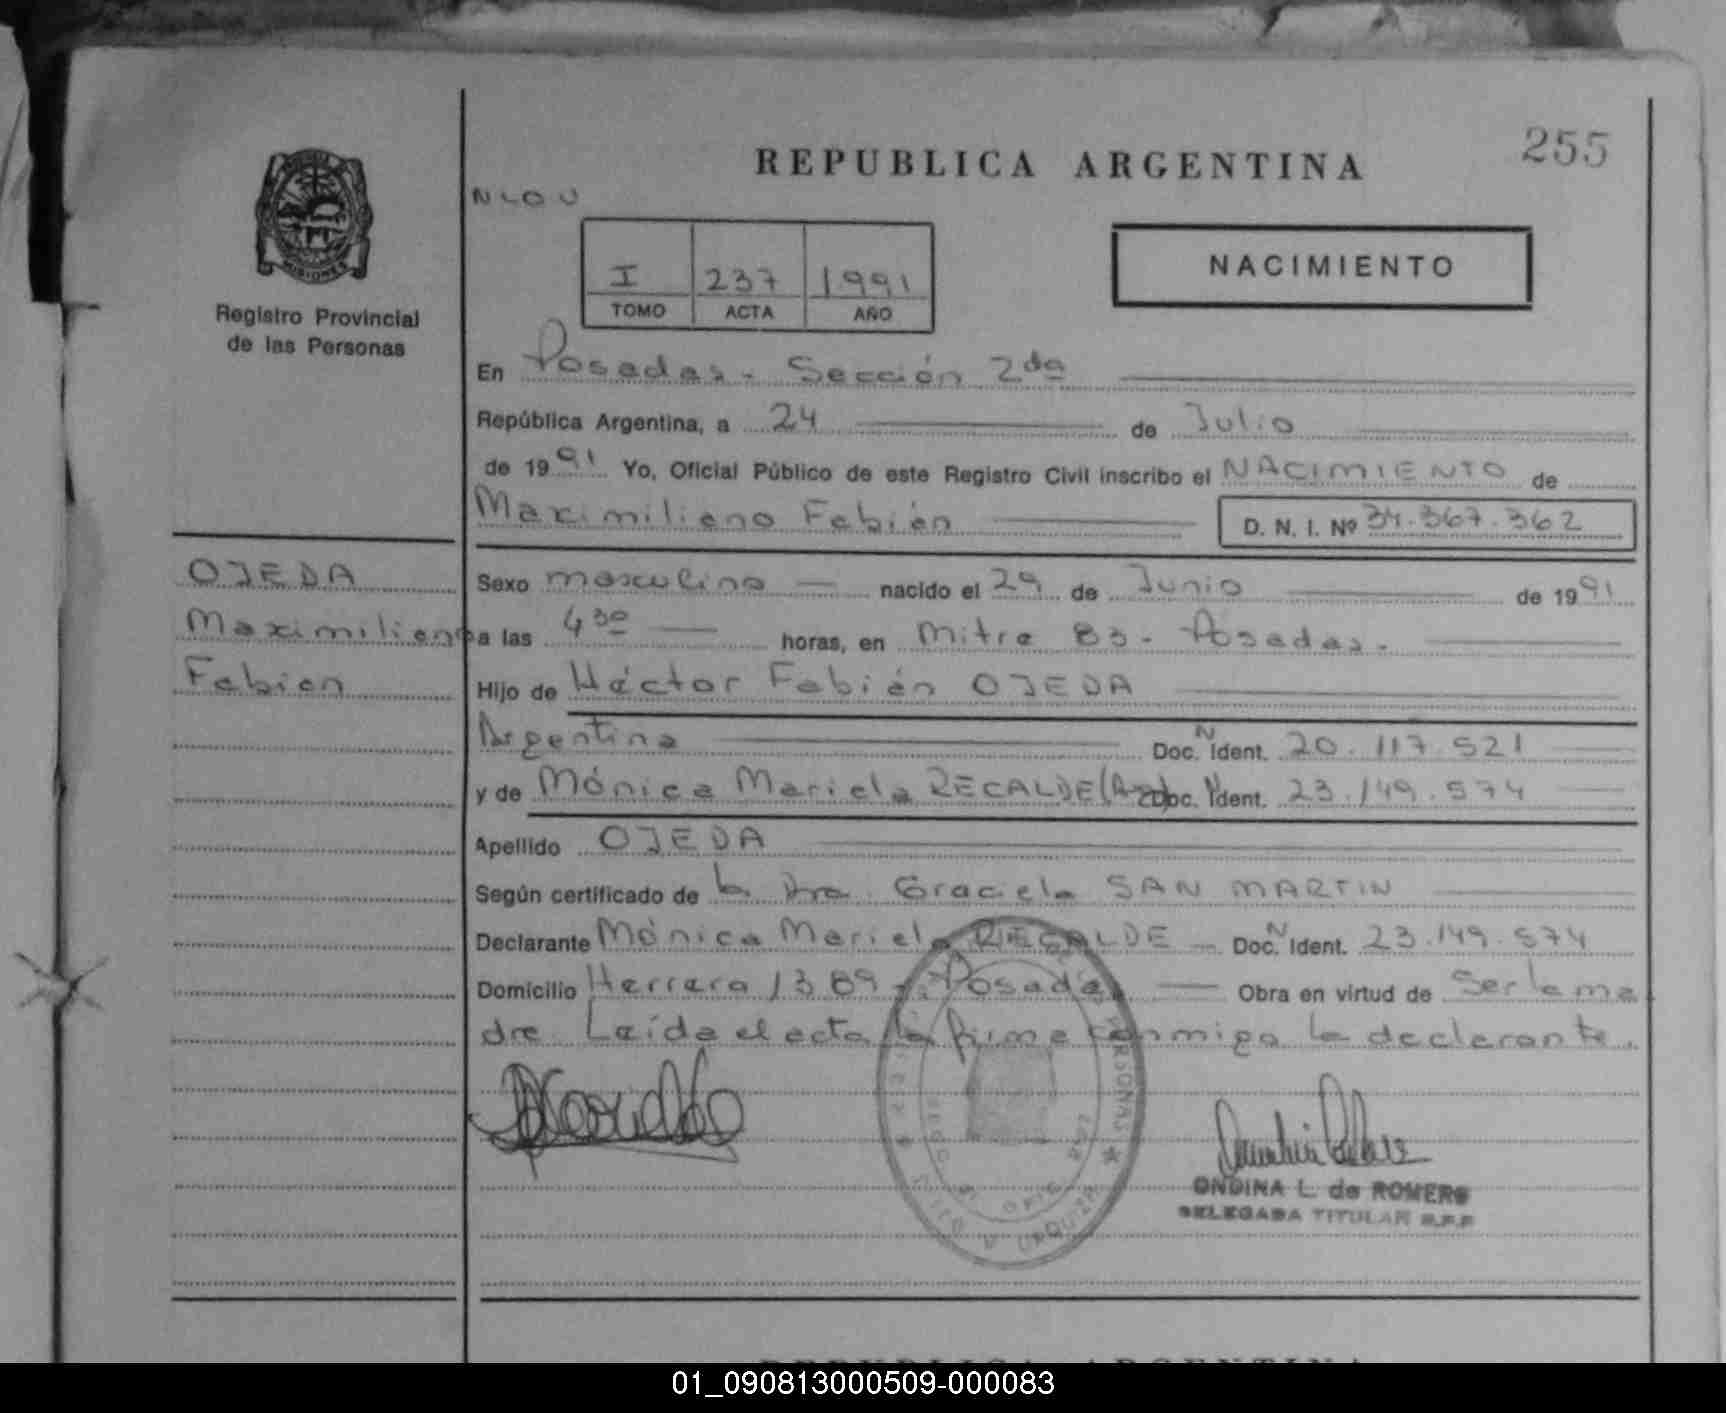 255
REPUBLICA ARGENTINA
MISIONES
Registro Provincial
de las Personas
I 237 1991
TOMO ACTA AÑO
NACIMIENTO
En Posadas - Sección 2da
República Argentina, a 24 de Julio
de 1991 Yo, Oficial Público de este Registro Civil inscribo el NACIMIENTO de
Maximiliano Fabián D. N. I. Nº 34.367.362
OJEDA
Maximiliano
Fabian
Sexo masculino nacido el 29 de Junio de 1991
a las 4 30 horas, en Mitre 83 - Posadas.
Hijo de Héctor Fabián OJEDA
Argentina Doc. N Ident. 20.117.521
y de Mónica Mariela RECALDE (Arg) Doc. N Ident. 23.149.574
Apellido OJEDA
Según certificado de la Dra. Graciela SAN MARTIN
Declarante Mónica Mariela RECALDE Doc. N Ident. 23.149.574
Domicilio Herrera 1389 - Posadas Obra en virtud de Ser la ma
dre. Leída el acta la firma conmigo la declarante.
PERSONAS
URQUIZA
ONDINA L. de ROMERO
DELEGADA TITULAR R.P.P
REPUBLICA ARGENTINA
01_090813000509-000083